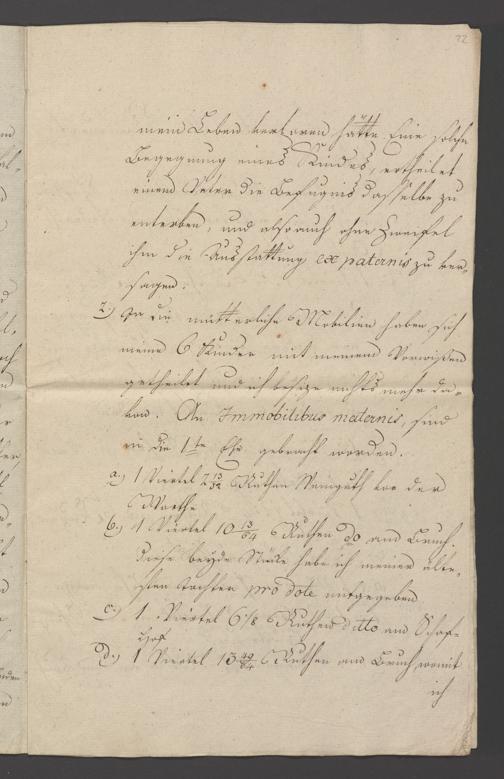 22
mein Leben verlohren hätte. Eine solche
Begegnung eines Kindes, ertheilet
einem Vater die Befugnis dasselbe zu
enterben, und also auch ohne Zweifel
ihm die Ausstattung ex paternis zu ver-
sagen.
2.) In die mütterliche Mobilien haben sich
meine 6 Kinder mit meinem Vorwißen
getheilet und ich besize nichts mehr da-
von. An Immobilibus maternis, sind
in die 1te Ehe gebracht worden.
a.) 1 Viertel 2 13/32 Ruthen Weinguth vor der
Warthe
b.) 1 Viertel 10 13/64 Ruthen do am Bruch.
diese beyde Stücke habe ich meiner älte-
sten Tochter pro dote mitgegeben
c.) 1 Viertel 6 1/8 Ruthen ditto am Schaf-
hof
d.) 1 Viertel 13 49/64 Ruthen am Bruch womit
ich